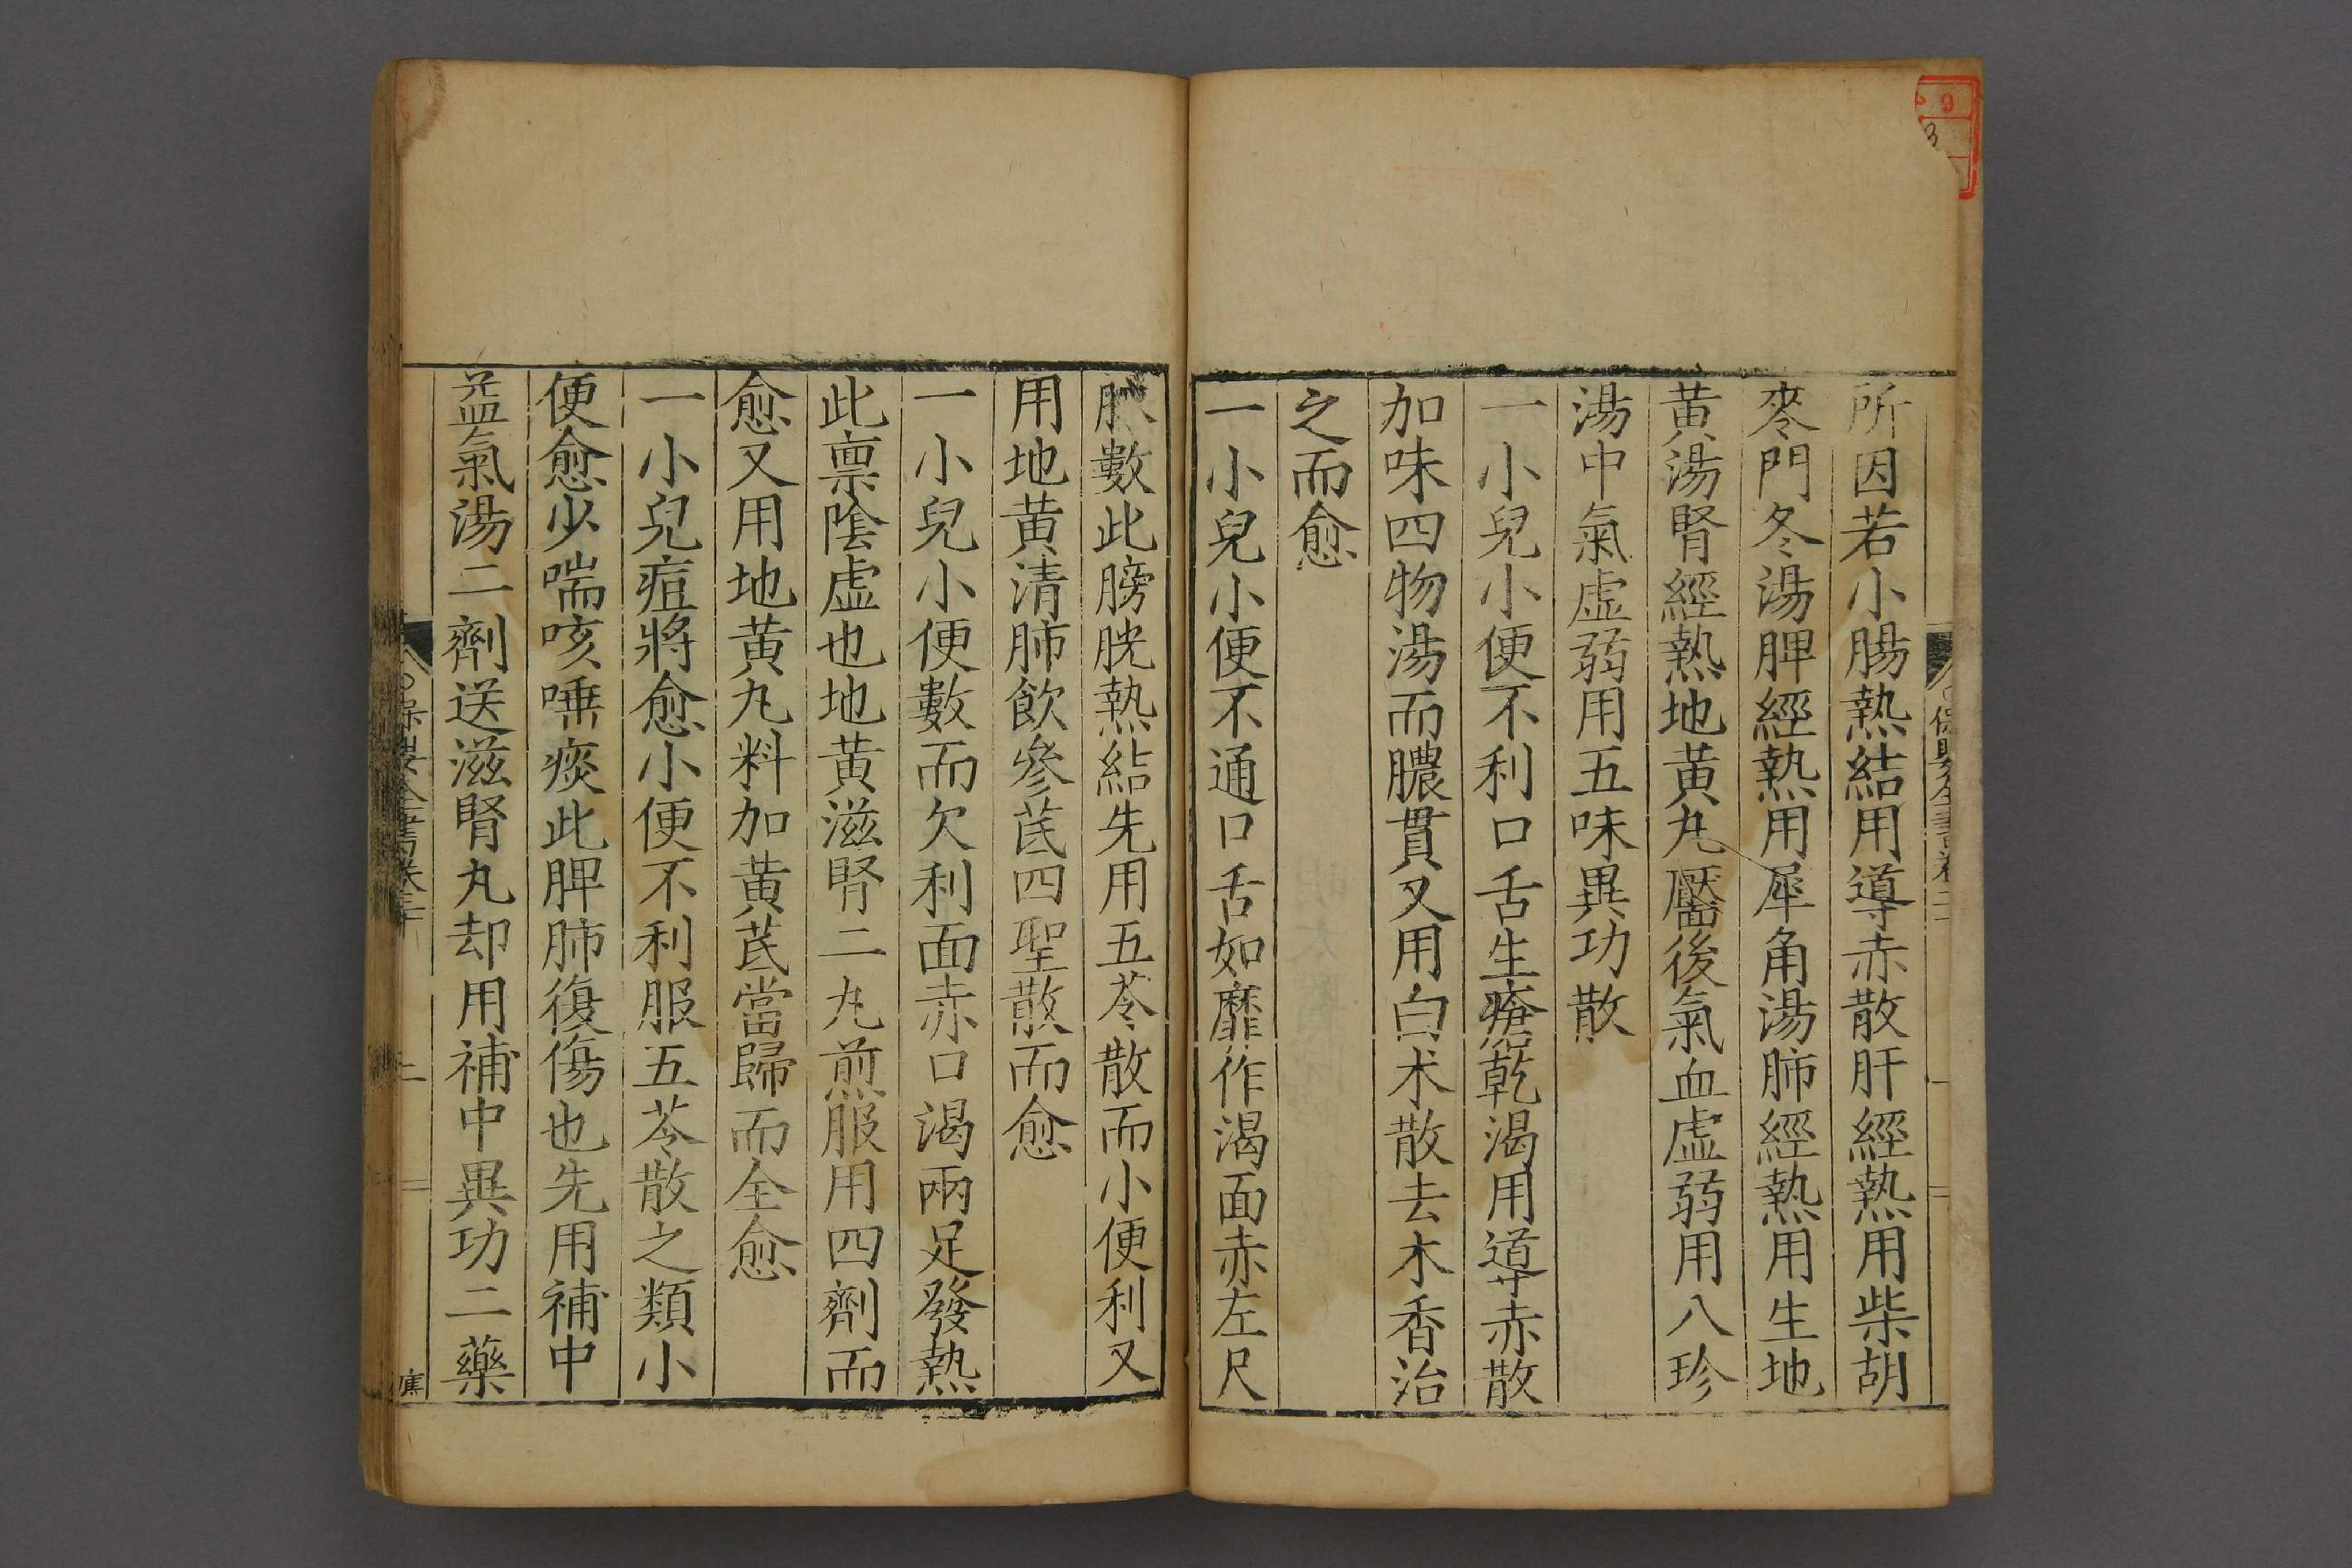 所因若小腸熱結用導赤散肝經熱用柴胡
麥門冬湯脾經熱用犀角湯肺經熱用生地
黃湯腎經熱地黃丸靨後氣血虛弱用八珍
湯中氣虛弱用五味異功散
一小兒小便不利口舌生瘡乾渴用導赤散
加味四物湯而膿貫又用白朮散去木香治
之而愈
一小兒小便不通口舌如靡作渴面赤左尺
脉數此膀胱熱結先用五苓散而小便利又
用地黃清肺飲參芪四聖散而愈
一小兒小便數而欠利面赤口渴兩足發熱
此禀陰虛也地黃滋腎二丸煎服用四劑而
愈又用地黃丸料加黃芪當歸而全愈
一小兒痘將愈小便不利服五苓散之類小
便愈少喘咳唾痰此脾肺復傷也先用補中
益氣湯二劑送滋腎丸却用補中異功二藥
保嬰全書卷二十
二